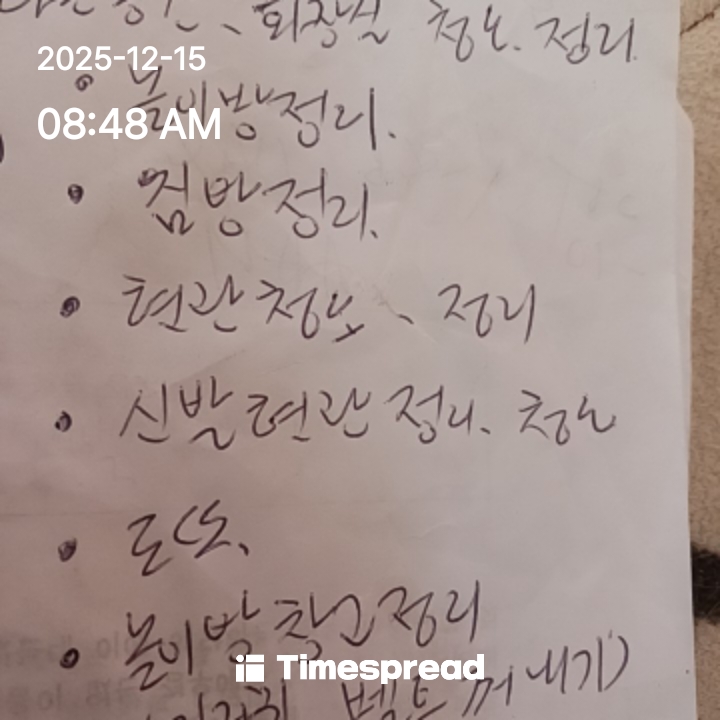 화장실 청소. 정리
2025-12-15
놀이방 정리.
08:48 AM
짐방 정리.
현관 청소、정리
신발 현관 정리. 청소
놀이방 창고 정리
Timespread
벨트 꺼내기)